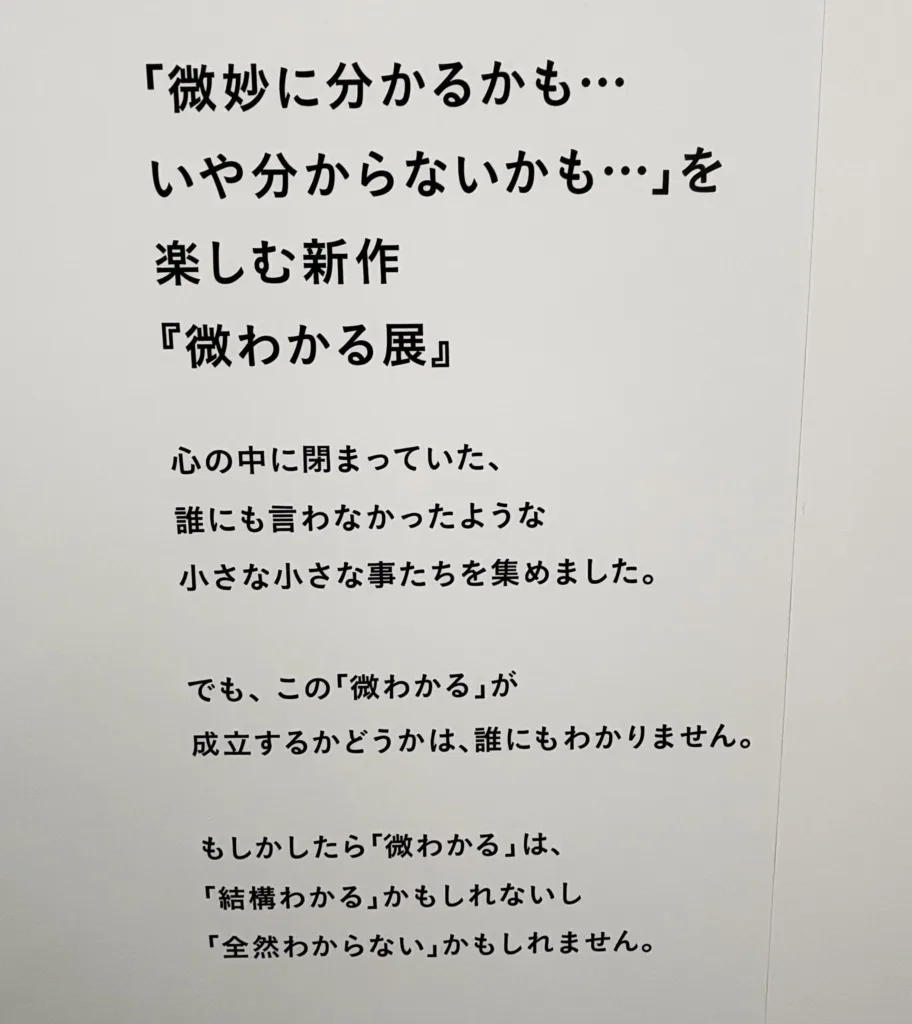 「微妙に分かるかも…
いや分からないかも…」を
楽しむ新作
『微わかる展』
心の中に閉まっていた、
誰にも言わなかったような
小さな小さな事たちを集めました。
でも、この「微わかる」が
成立するかどうかは、誰にもわかりません。
もしかしたら「微わかる」は、
「結構わかる」かもしれないし
「全然わからない」かもしれません。